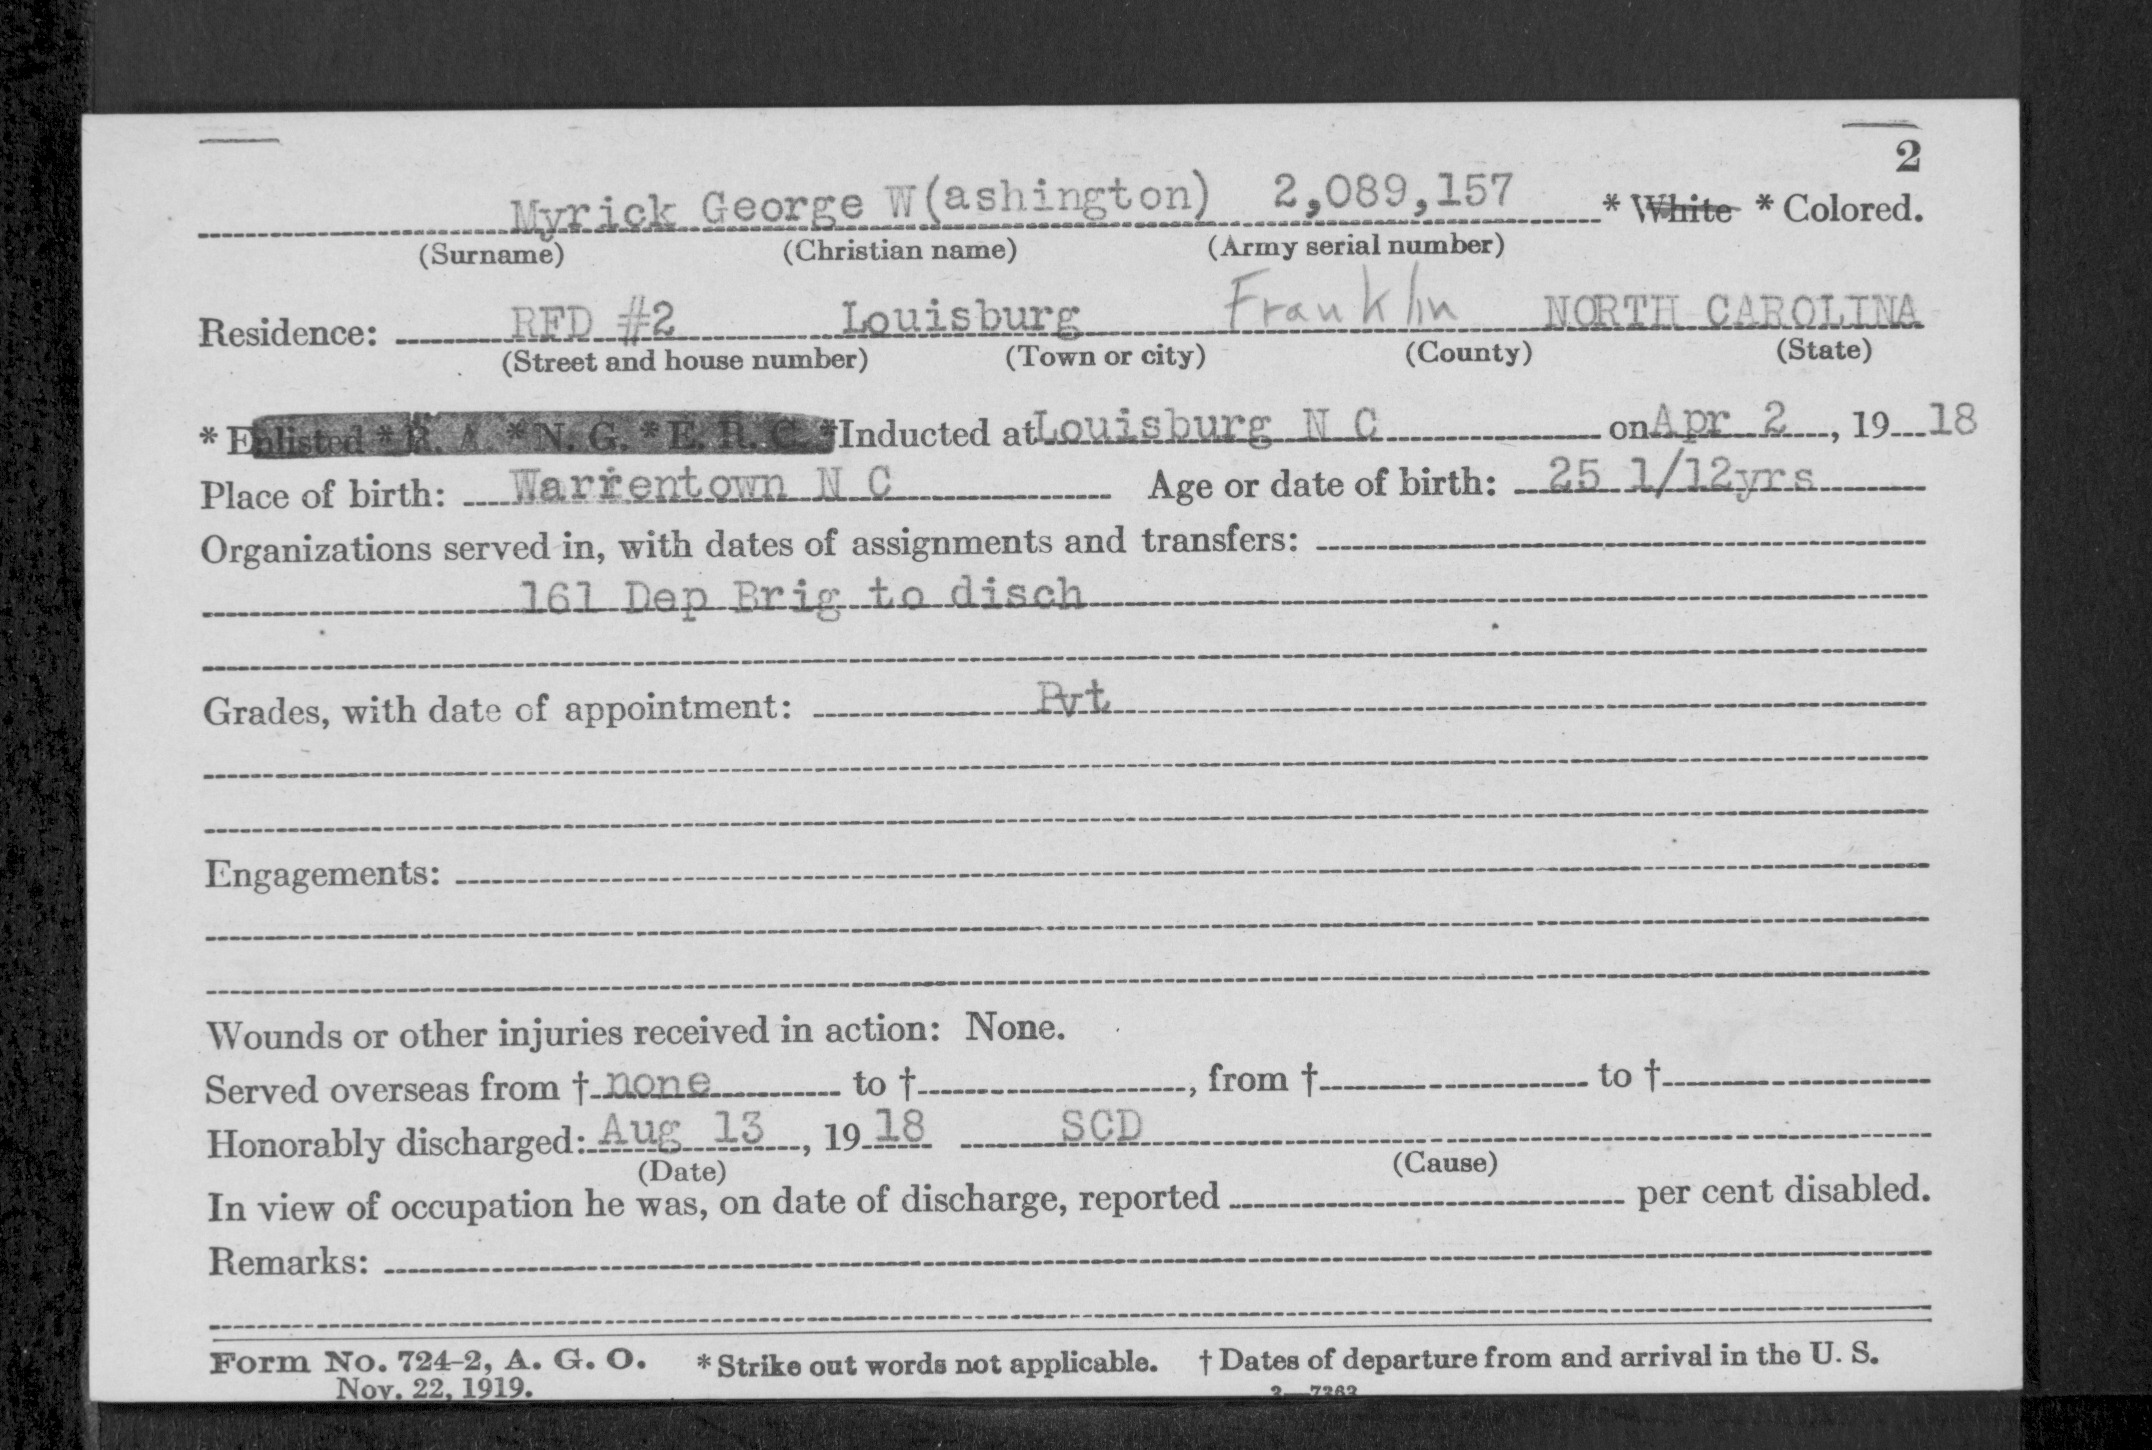 2
Myrick George W(ashington) 2,089,157 * White * Colored.
(Surname) (Christian name) (Army serial number)
Residence: RFD #2 Louisburg Franklin NORTH CAROLINA
(Street and house number) (Town or city) (County) (State)
* Enlisted * R. A. * N. G. * E. R. C. *Inducted at Louisburg N C on Apr 2, 1918
Place of birth: Warrentown N C Age or date of birth: 25 1/12yrs
Organizations served in, with dates of assignments and transfers:
161 Dep Brig to disch
Grades, with date of appointment: Pvt
Engagements:
Wounds or other injuries received in action: None.
Served overseas from † none to †, from † to †
Honorably discharged: Aug 13, 1918 SCD
(Date) (Cause)
In view of occupation he was, on date of discharge, reported per cent disabled.
Remarks:
Form No. 724-2, A. G. O. * Strike out words not applicable. † Dates of departure from and arrival in the U. S.
Nov. 22, 1919. 3—7363